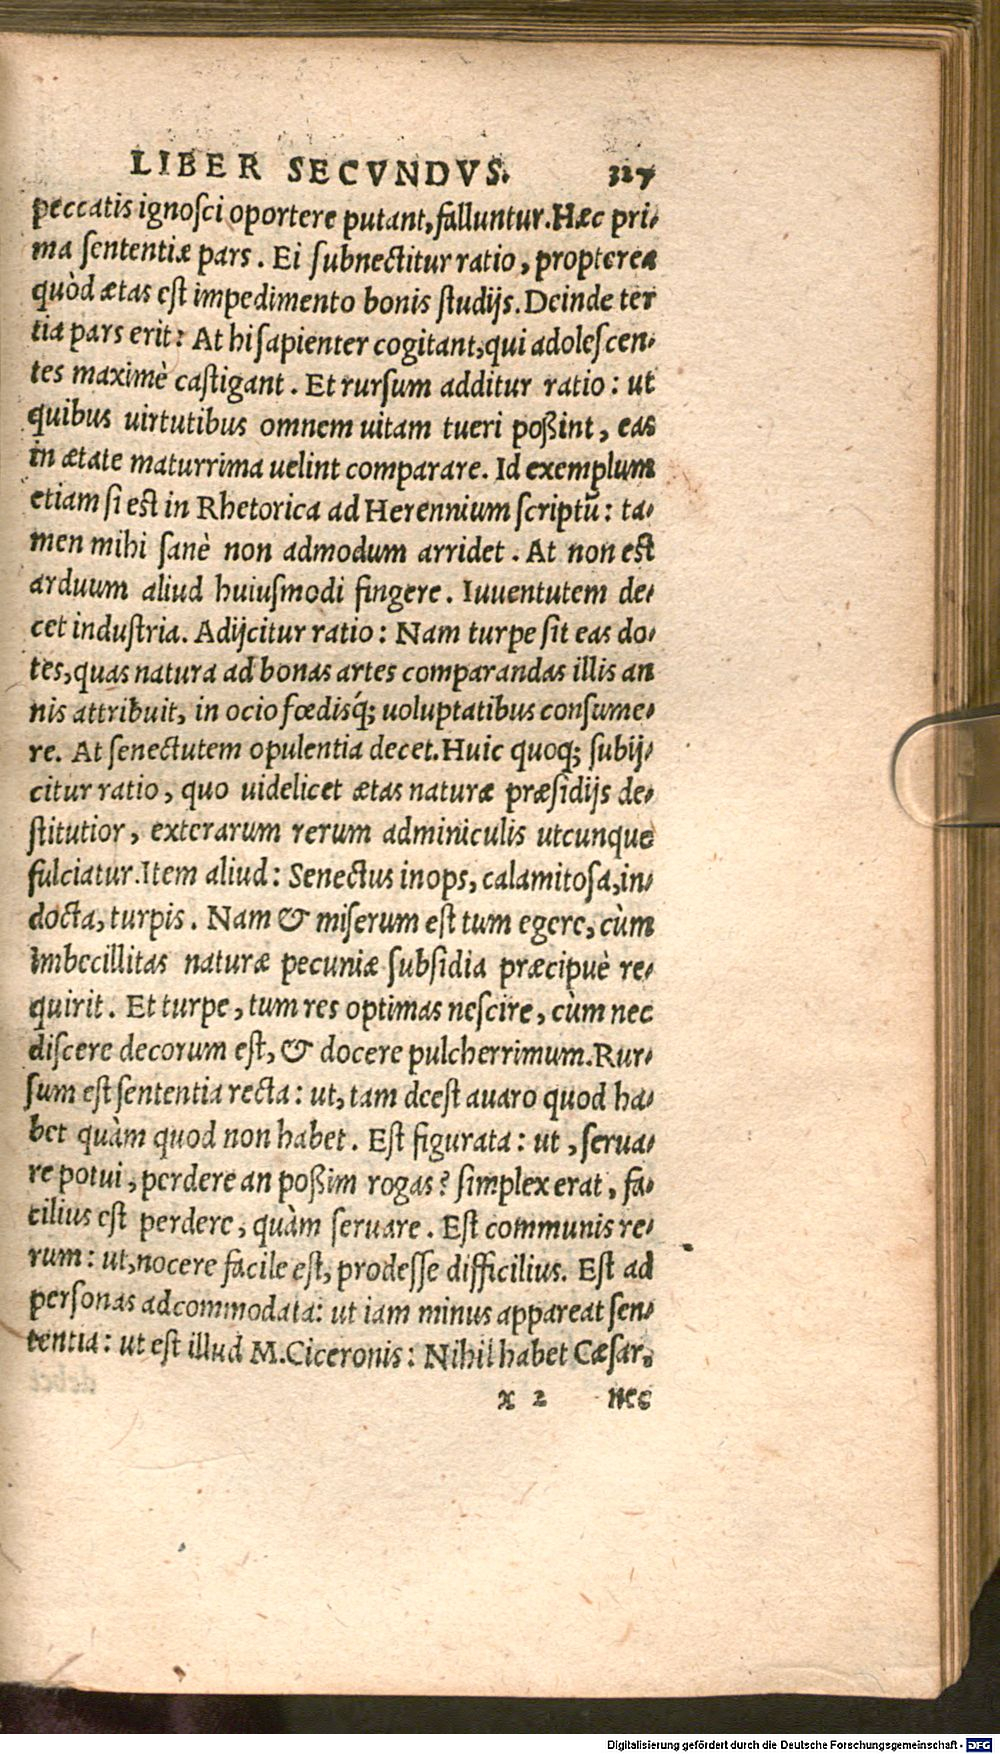 LIBER SECVNDVS. 327
peccatis ignoſci oportere putant, falluntur. Hæc pri-
ma ſententiæ pars. Ei ſubnectitur ratio, propterea
quòd ætas eſt impedimento bonis ſtudijs. Deinde ter
tia pars erit: At hi ſapienter cogitant, qui adoleſcen-
tes maximè caſtigant. Et rurſum additur ratio: ut
quibus uirtutibus omnem uitam tueri poßint, eas
in ætate maturrima uelint comparare. Id exemplum
etiam ſi eſt in Rhetorica ad Herennium ſcriptū: ta-
men mihi ſanè non admodum arridet. At non eſt
arduum aliud huiuſmodi fingere. Iuuentutem de-
cet induſtria. Adijcitur ratio: Nam turpe ſit eas do-
tes, quas natura ad bonas artes comparandas illis an
nis attribuit, in ocio fœdisq́; uoluptatibus conſume-
re. At ſenectutem opulentia decet. Huic quoq; ſubij-
citur ratio, quo uidelicet ætas naturæ præſidijs de-
ſtitutior, exterarum rerum adminiculis utcunque
fulciatur. Item aliud: Senectus inops, calamitoſa, in-
docta, turpis. Nam & miſerum eſt tum egere, cùm
imbecillitas naturæ pecuniæ ſubſidia præcipuè re-
quirit. Et turpe, tum res optimas neſcire, cùm nec
diſcere decorum eſt, & docere pulcherrimum. Rur-
ſum eſt ſententia recta: ut, tam deeſt auaro quod ha-
bet quàm quod non habet. Eſt figurata: ut, ſerua-
re potui, perdere an poßim rogas? ſimplex erat, fa-
cilius eſt perdere, quàm ſeruare. Eſt communis re-
rum: ut, nocere facile eſt, prodeſſe difficilius. Eſt ad
perſonas adcommodata: ut iam minus appareat ſen-
tentia: ut eſt illud M. Ciceronis: Nihil habet Cæſar,
x 2 nec
Digitalisierung gefördert durch die Deutsche Forschungsgemeinschaft - DFG